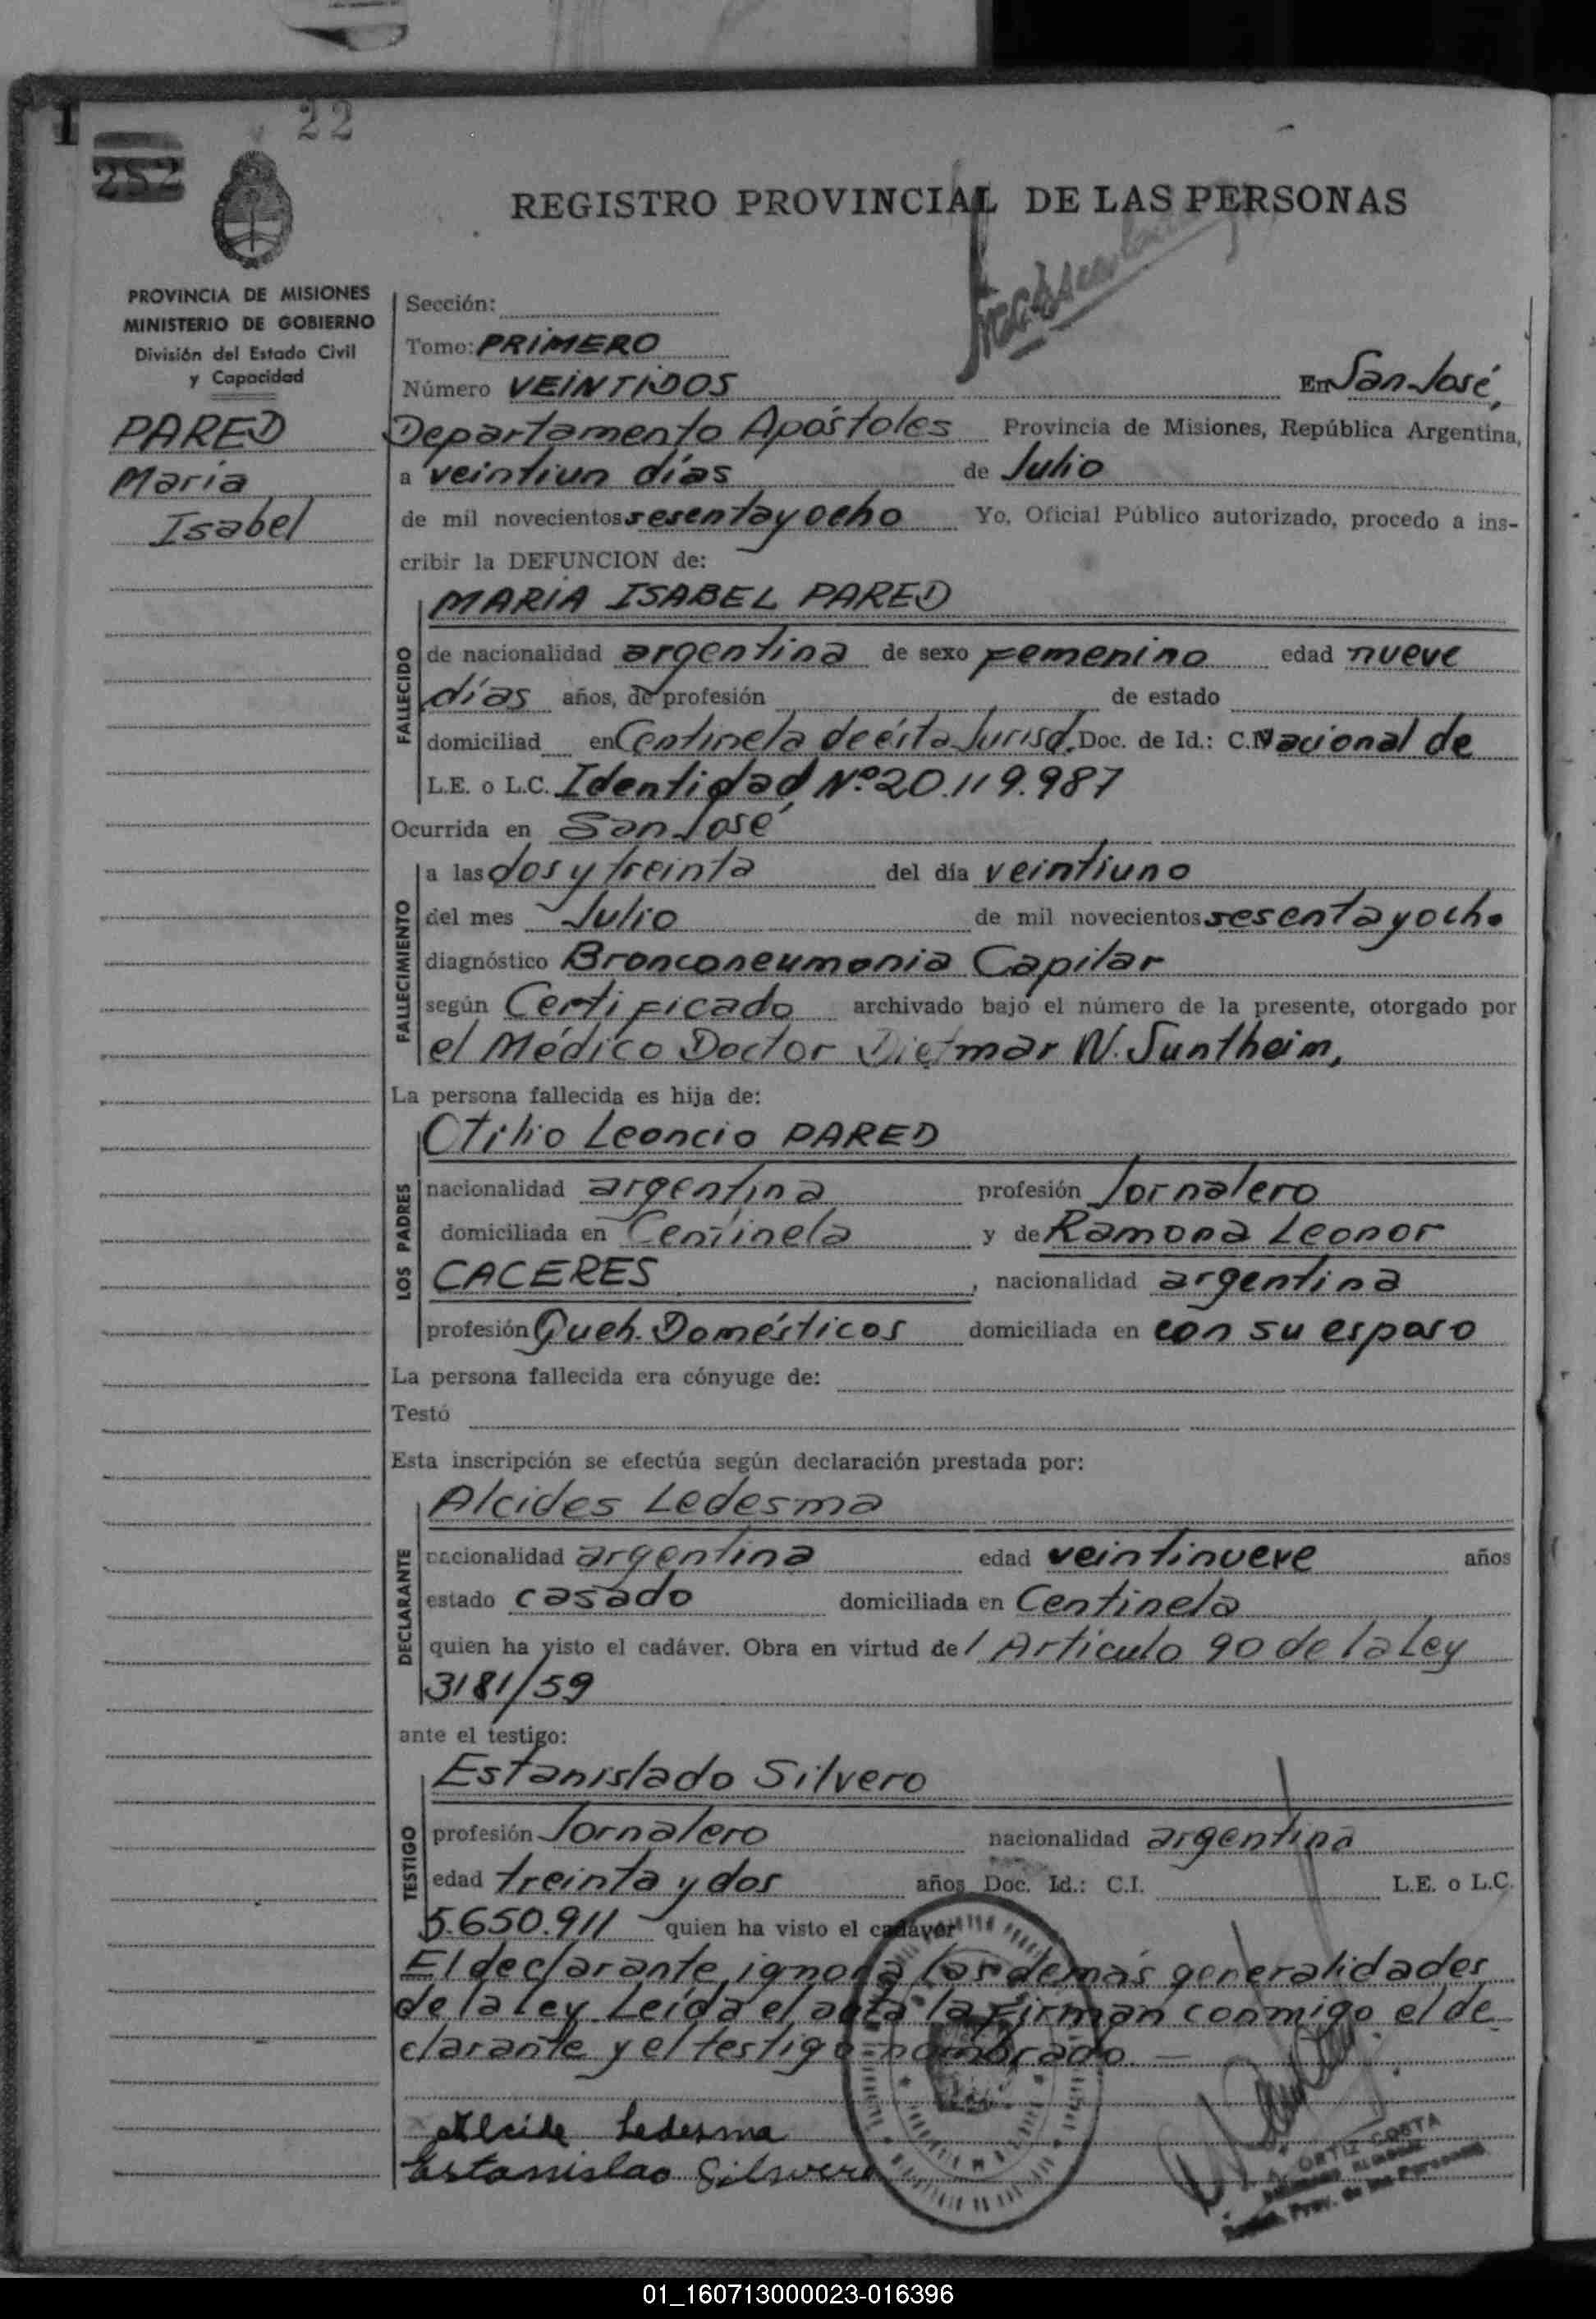 1
22
252
REGISTRO PROVINCIAL DE LAS PERSONAS
PROVINCIA DE MISIONES
MINISTERIO DE GOBIERNO
División del Estado Civil
y Capacidad
PARED
María
Isabel
Sección:
Tomo: PRIMERO
Número VEINTIDOS En San José,
Departamento Apóstoles Provincia de Misiones, República Argentina,
a veintiun días de Julio
de mil novecientos sesenta y ocho Yo, Oficial Público autorizado, procedo a ins-
cribir la DEFUNCION de:
FALLECIDO
MARIA ISABEL PARED
de nacionalidad argentina de sexo Femenino edad nueve
días años, de profesión de estado
domiciliad en Centinela de ésta Jurisd. Doc. de Id.: C. Nacional de
L.E. o L.C. Identidad Nº 20.119.987
Ocurrida en San José
FALLECIMIENTO
a las dos y treinta del día veintiuno
del mes Julio de mil novecientos sesenta y ocho
diagnóstico Bronconeumonia Capilar
según Certificado archivado bajo el número de la presente, otorgado por
el Médico Doctor Dietmar W. Suntheim,
La persona fallecida es hija de:
LOS PADRES
Otilio Leoncio PARED
nacionalidad argentina profesión Jornalero
domiciliada en Centinela y de Ramona Leonor
CACERES , nacionalidad argentina
profesión Queh. Domésticos domiciliada en con su esposo
La persona fallecida era cónyuge de:
Testó
Esta inscripción se efectúa según declaración prestada por:
DECLARANTE
Alcides Ledesma
nacionalidad argentina edad veintinueve años
estado casado domiciliada en Centinela
quien ha visto el cadáver. Obra en virtud del Articulo 90 de la Ley
3181/59
ante el testigo:
TESTIGO
Estanislado Silvero
profesión Jornalero nacionalidad argentina
edad treinta y dos años Doc. Id.: C.I. L.E. o L.C.
5.650.911 quien ha visto el cadáver
El declarante ignora las demás generalidades
de la ley. Leída el acta la firman conmigo el de
clarante y el testigo nombrado. —
Alcide Ledesma
Estanislao Silvero
ORTIZ COSTA
Prov. de las Personas
01_160713000023-016396